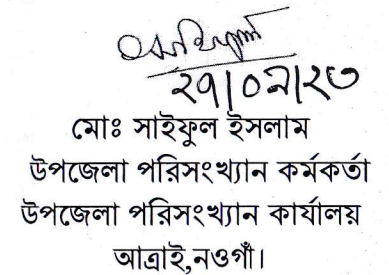 ২৭|০৯|২৩
মোঃ সাইফুল ইসলাম
উপজেলা পরিসংখ্যান কর্মকর্তা
উপজেলা পরিসংখ্যান কার্যালয়
আত্রাই,নওগাঁ।